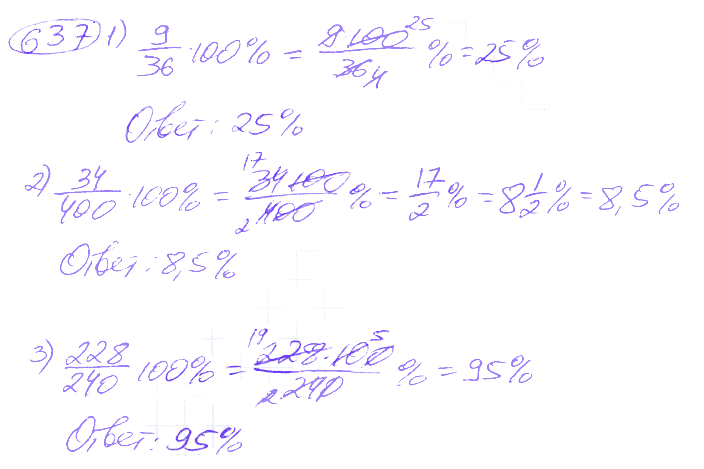 637 1) 9/36 · 100% = 9·100 25/36 4 % = 25%
Ответ: 25%
2) 34/400 · 100% = 17 34·100/2 400 % = 17/2 % = 8 1/2 % = 8,5%
Ответ: 8,5%
3) 228/240 · 100% = 19 228·100 5/2 240 % = 95%
Ответ: 95%